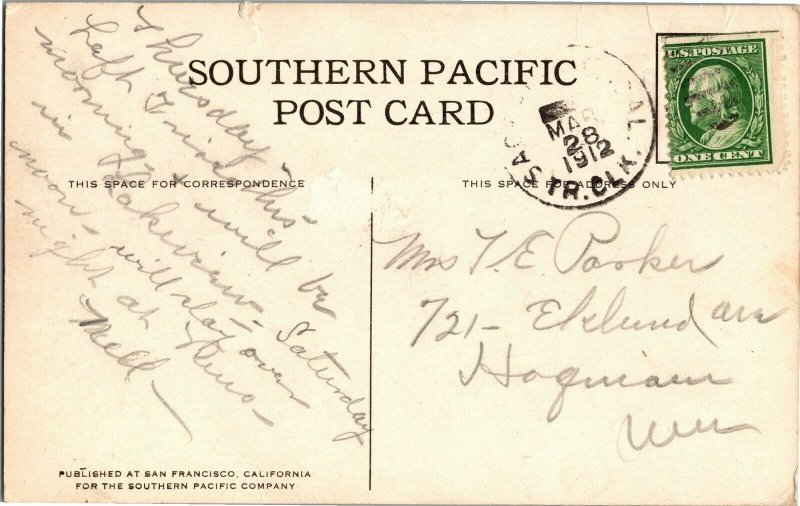 SOUTHERN PACIFIC
POST CARD
U.S. POSTAGE
ONE CENT
SAC CAL.
MAR
28
1912
TR. CLK.
THIS SPACE FOR CORRESPONDENCE
THIS SPACE FOR ADDRESS ONLY
Thursday -
Left this
morning & will be
in Lakeview - Saturday
noon - will stay over
night at Reno -
Mell -
Mrs T. E. Parker
721 - Eklund ave
Hoquiam
Wn
PUBLISHED AT SAN FRANCISCO, CALIFORNIA
FOR THE SOUTHERN PACIFIC COMPANY